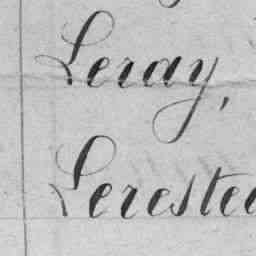 Leray,
Lerestei